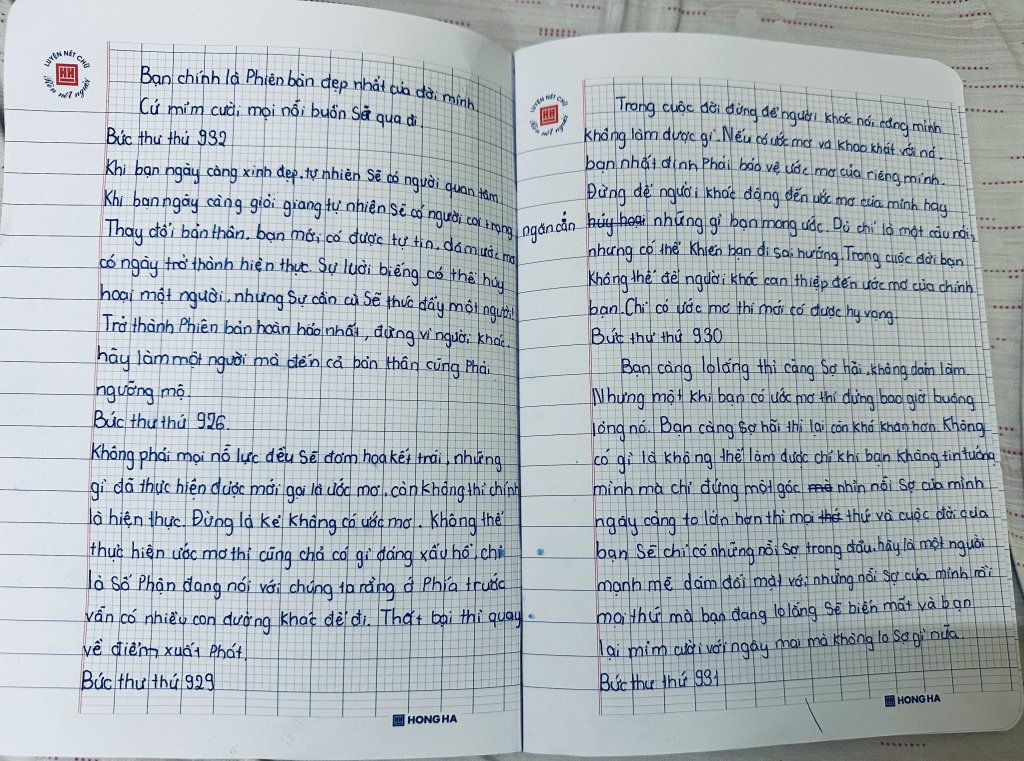 LUYỆN NẾT CHỮ
HH
Rèn nết người
Bạn chính là Phiên bản đẹp nhất của đời mình.
Cứ mỉm cười mọi nỗi buồn Sẽ qua đi.
Bức thư thứ 932
Khi bạn ngày càng xinh đẹp, tự nhiên Sẽ có người quan tâm
Khi bạn ngày càng giỏi giang tự nhiên Sẽ có người coi trọng
Thay đổi bản thân. bạn mới có được tự tin. dám ước mơ
có ngày trở thành hiện thực. Sự lười biếng có thể hủy
hoại một người, nhưng Sự cần cù Sẽ thức đẩy một người!
Trở thành Phiên bản hoàn hảo nhất, đừng vì người khác.
hãy làm một người mà đến cả bản thân cũng Phải
ngưỡng mộ.
Bức thư thứ 926.
Không phải mọi nỗ lực đều Sẽ đơm hoa kết trái, những
gì đã thực hiện được mới gọi là ước mơ, còn không thì chính
là hiện thực. Đừng là kẻ không có ước mơ. Không thể
thực hiện ước mơ thì cũng chả có gì đáng xấu hổ, chỉ
là Số Phận đang nói với chúng ta rằng ở Phía trước
vẫn có nhiều con đường khác để đi. Thất bại thì quay
về điểm xuất Phát.
Bức thư thứ 929
HH HONG HA
LUYỆN NẾT CHỮ
HH
Rèn nết người
Trong cuộc đời đừng để người khác nói rằng mình
không làm được gì. Nếu có ước mơ và khao khát với nó.
bạn nhất định Phải bảo vệ ước mơ của riêng mình.
Đừng để người khác động đến ước mơ của mình hay
ngăn cản hủy hoại những gì bạn mong ước. Dù chỉ là một câu nói,
nhưng có thể Khiến bạn đi sai hướng. Trong cuộc đời bạn
không thể để người khác can thiệp đến ước mơ của chính
bạn. Chỉ có ước mơ thì mới có được hy vọng.
Bức thư thứ 930
Bạn càng lo lắng thì càng Sợ hãi, không dám làm.
Nhưng một khi bạn có ước mơ thì đừng bao giờ buông
lỏng nó. Bạn càng Sợ hãi thì lại càn khó khăn hơn. Không
có gì là không thể làm được chỉ khi bạn không tin tưởng
mình mà chỉ đứng một góc mà nhìn nỗi Sợ của mình
ngày càng to lớn hơn thì mọi thứ thứ và cuộc đời của
bạn Sẽ chỉ có những nỗi Sợ trong đầu. hãy là một người
mạnh mẽ dám đối mặt với những nỗi Sợ của mình rồi
mọi thứ mà bạn đang lo lắng Sẽ biến mất và bạn
lại mỉm cười với ngày mai mà không lo Sợ gì nữa.
Bức thư thứ 931
HH HONG HA